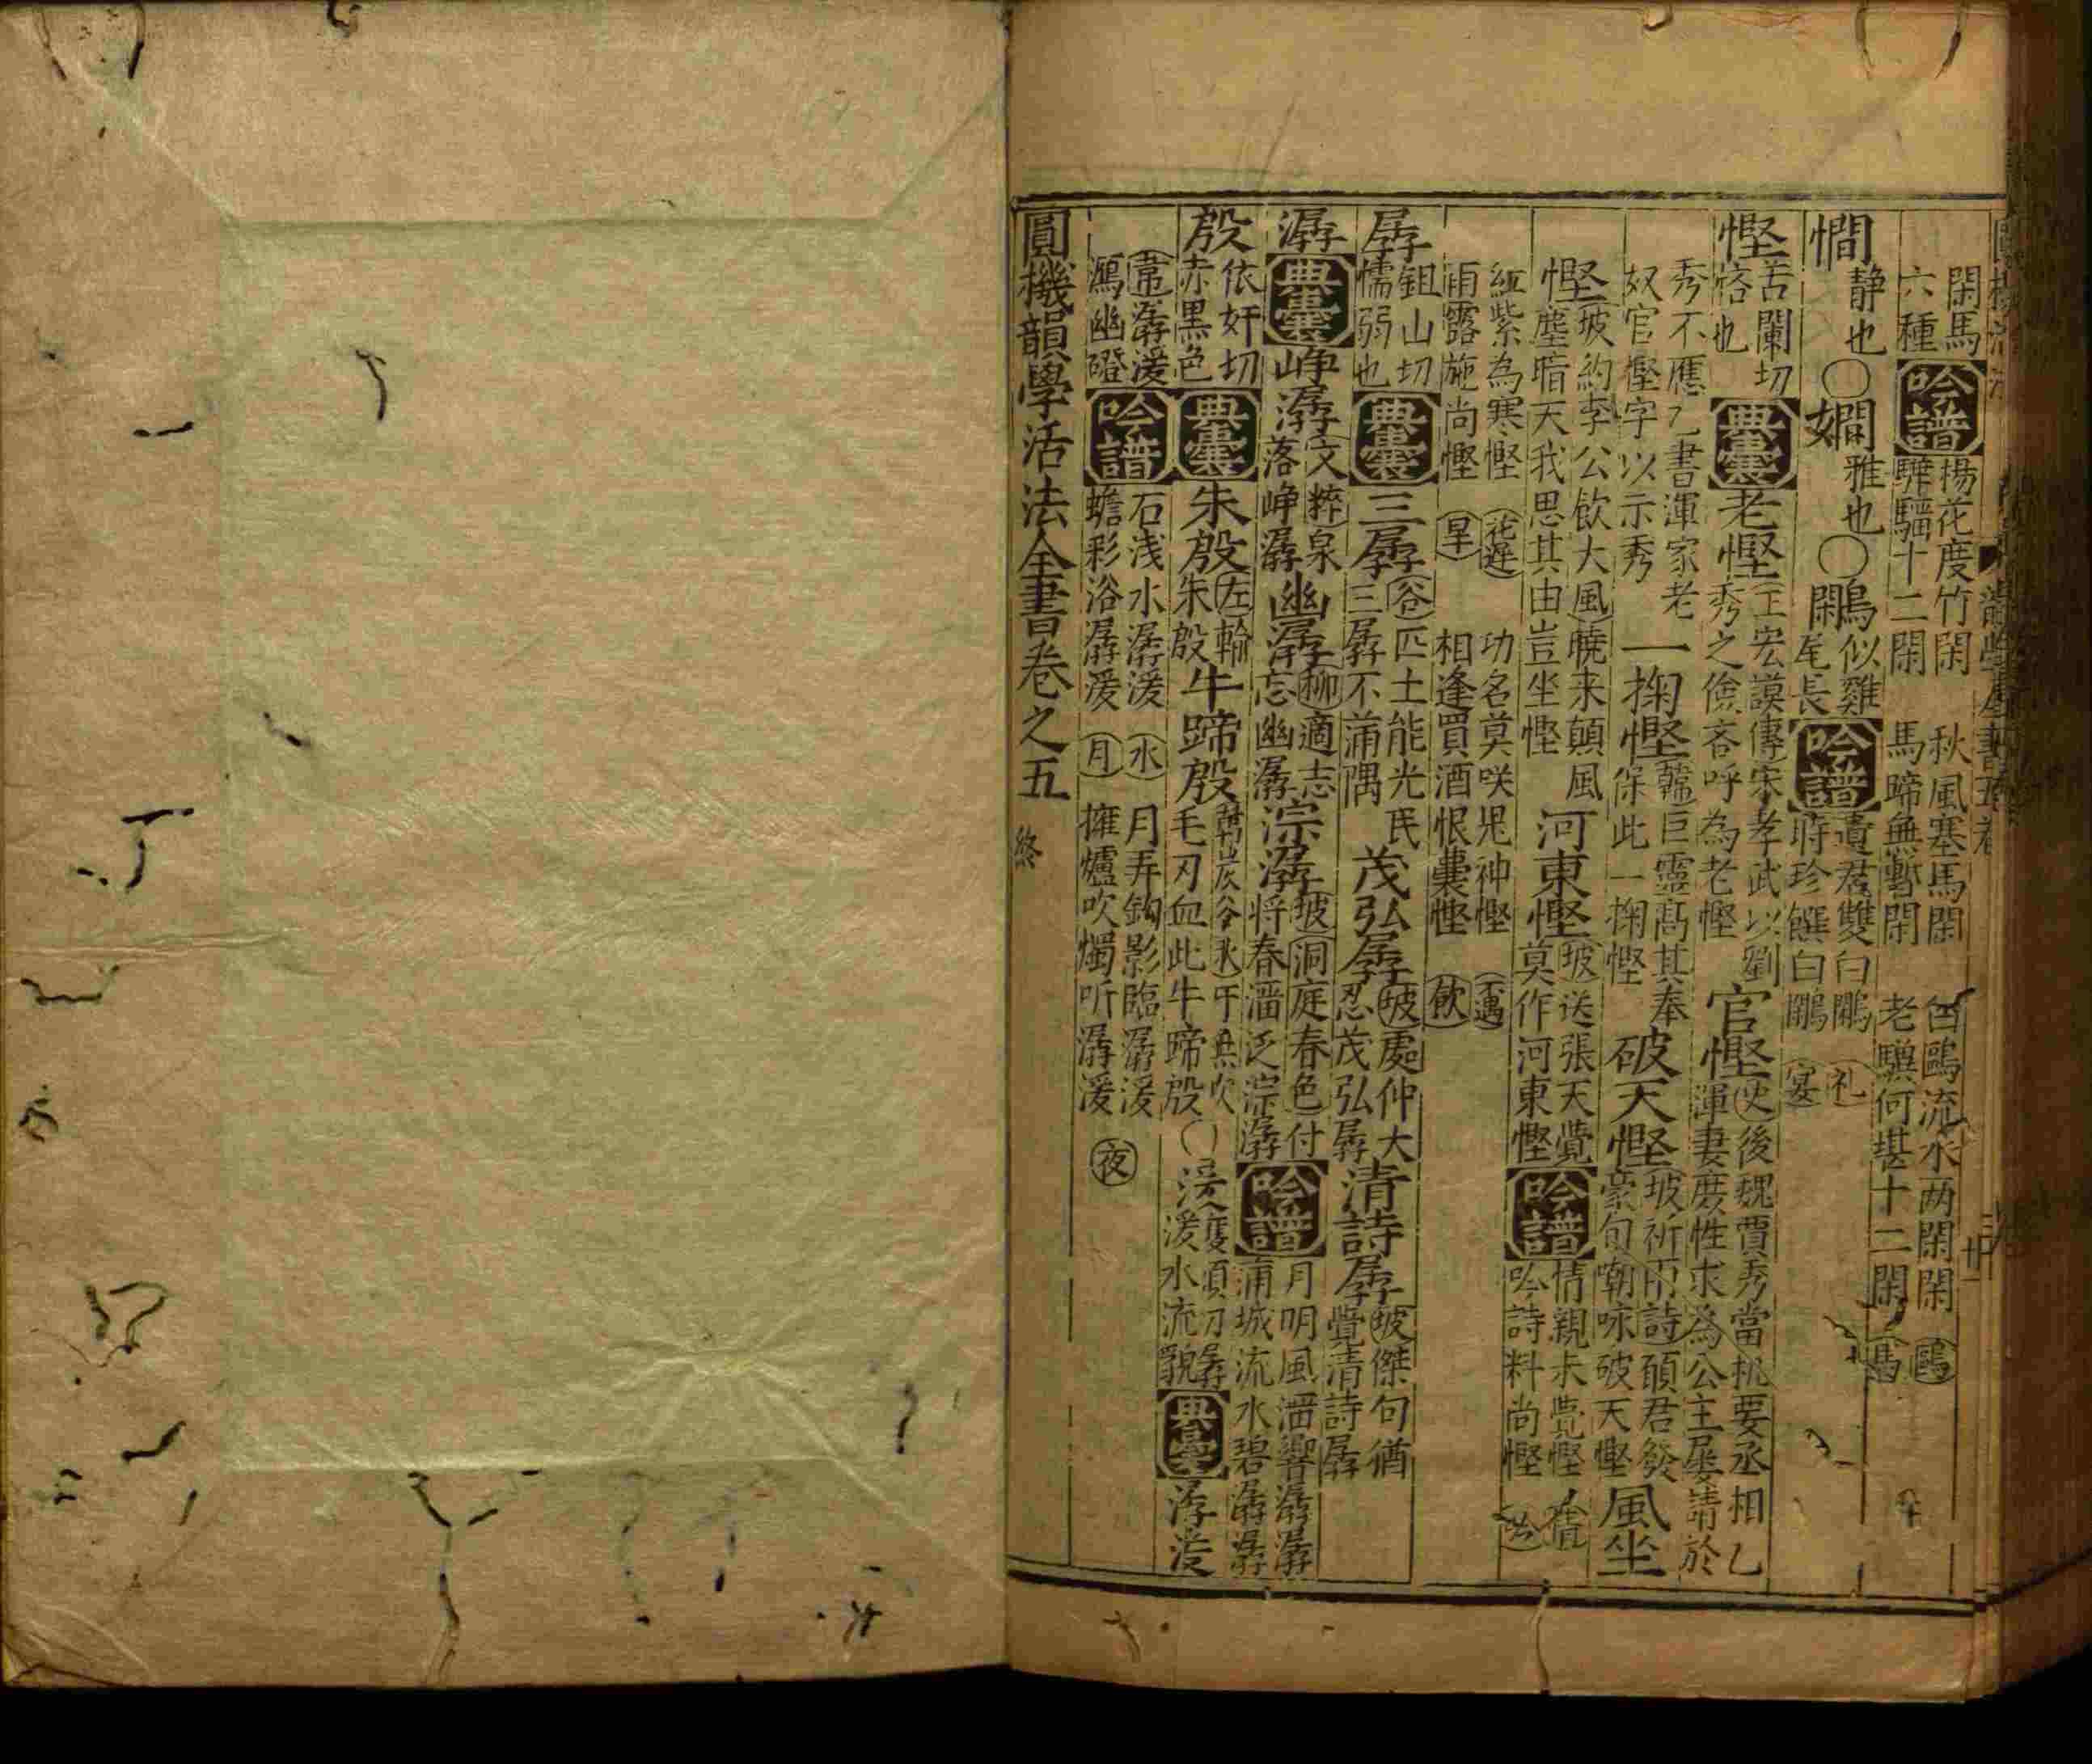 閑馬六種吟譜楊花度竹閑驊騮十二閑秋風塞馬閑馬蹄無暫閑白鷗流水两閑閑老驥何堪十二閑鷗馬
憪静也〇嫺雅也〇鷴鳥似雞尾長吟譜遺君雙白鷴時珍饌白鷴礼宴
慳苦闌切悋也典囊老慳王宏謨傳宋孝武以劉秀之儉吝呼為老慳官慳史後魏賈秀當机要丞相乙渾妻庻性求為公主屡請於
秀不應乙書渾家老奴官慳字以示秀一掬慳韓巨靈髙其奉保此一掬慳破天慳坡祈雨詩願君發豪句嘲咏破天慳風坐
慳坡約李公飲大風曉来顛風塵暗天我思其由豈坐慳河東慳坡送張天覺莫作河東慳吟譜情親未覺慳吟詩料尚慳
紅紫為寒慳雨露施尚慳花遲旱功名莫咲児神慳相逢買酒恨囊慳飲
孱鉏山切懦弱也典囊三孱谷匹士能光民三孱不蒲隅茂弘孱坡處仲大忍茂弘孱清詩孱坡傑句猶覺清詩孱
潺典囊峥潺文粹泉落峥潺幽潺柳適志忘幽潺淙潺坡洞庭春色付将春溜泛淙潺吟譜月明風溜響潺潺蒲城流水碧潺潺
殷依奸切赤黒色典囊朱殷左輪朱殷牛蹄殷毛刃血此牛蹄殷〇湲水流貌典囊潺湲
韋潺湲瀉幽磴吟譜石浅水潺湲蟾彩浴潺湲水月月弄鈎影臨潺湲擁爐吹燭听潺湲夜
圓機韻學活法全書卷之五終